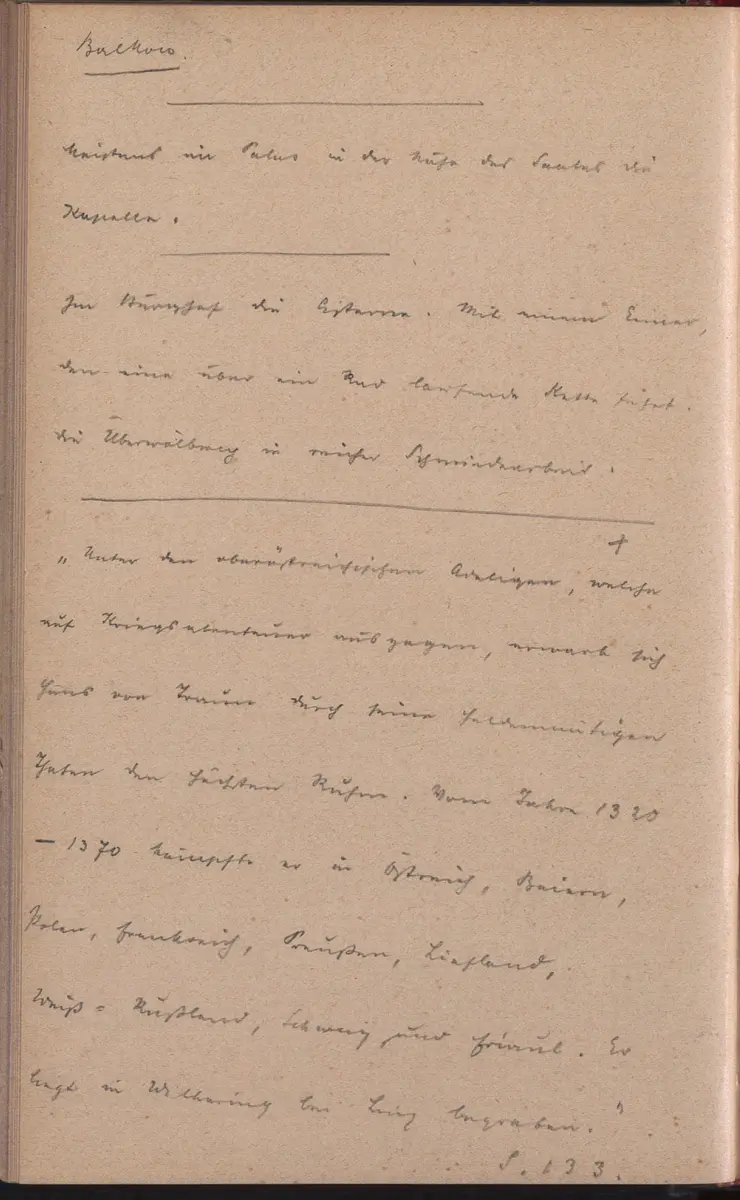 Balkow.
Meistens im Palas in der Nähe des Saales die
Kapelle.
Im Burghof die Cisterne. Mit einem Eimer,
den eine über ein Rad laufende Kette führt.
die Überwölbung in reicher Schmiedearbeit.
„Unter den oberöstreichischen Adeligen, welche
auf Kriegsabenteuer auszogen, erwarb sich
Hans von Traun durch seine heldenmütigen
Thaten den höchsten Ruhm. Vom Jahre 1320
– 1370 kämpfte er in Östreich, Baiern,
Polen, Frankreich, Preußen, Liefland,
Weiß=Rußland, Schweiz und Friaul. Er
liegt in Wilhering bei Linz begraben.“
S. 133.